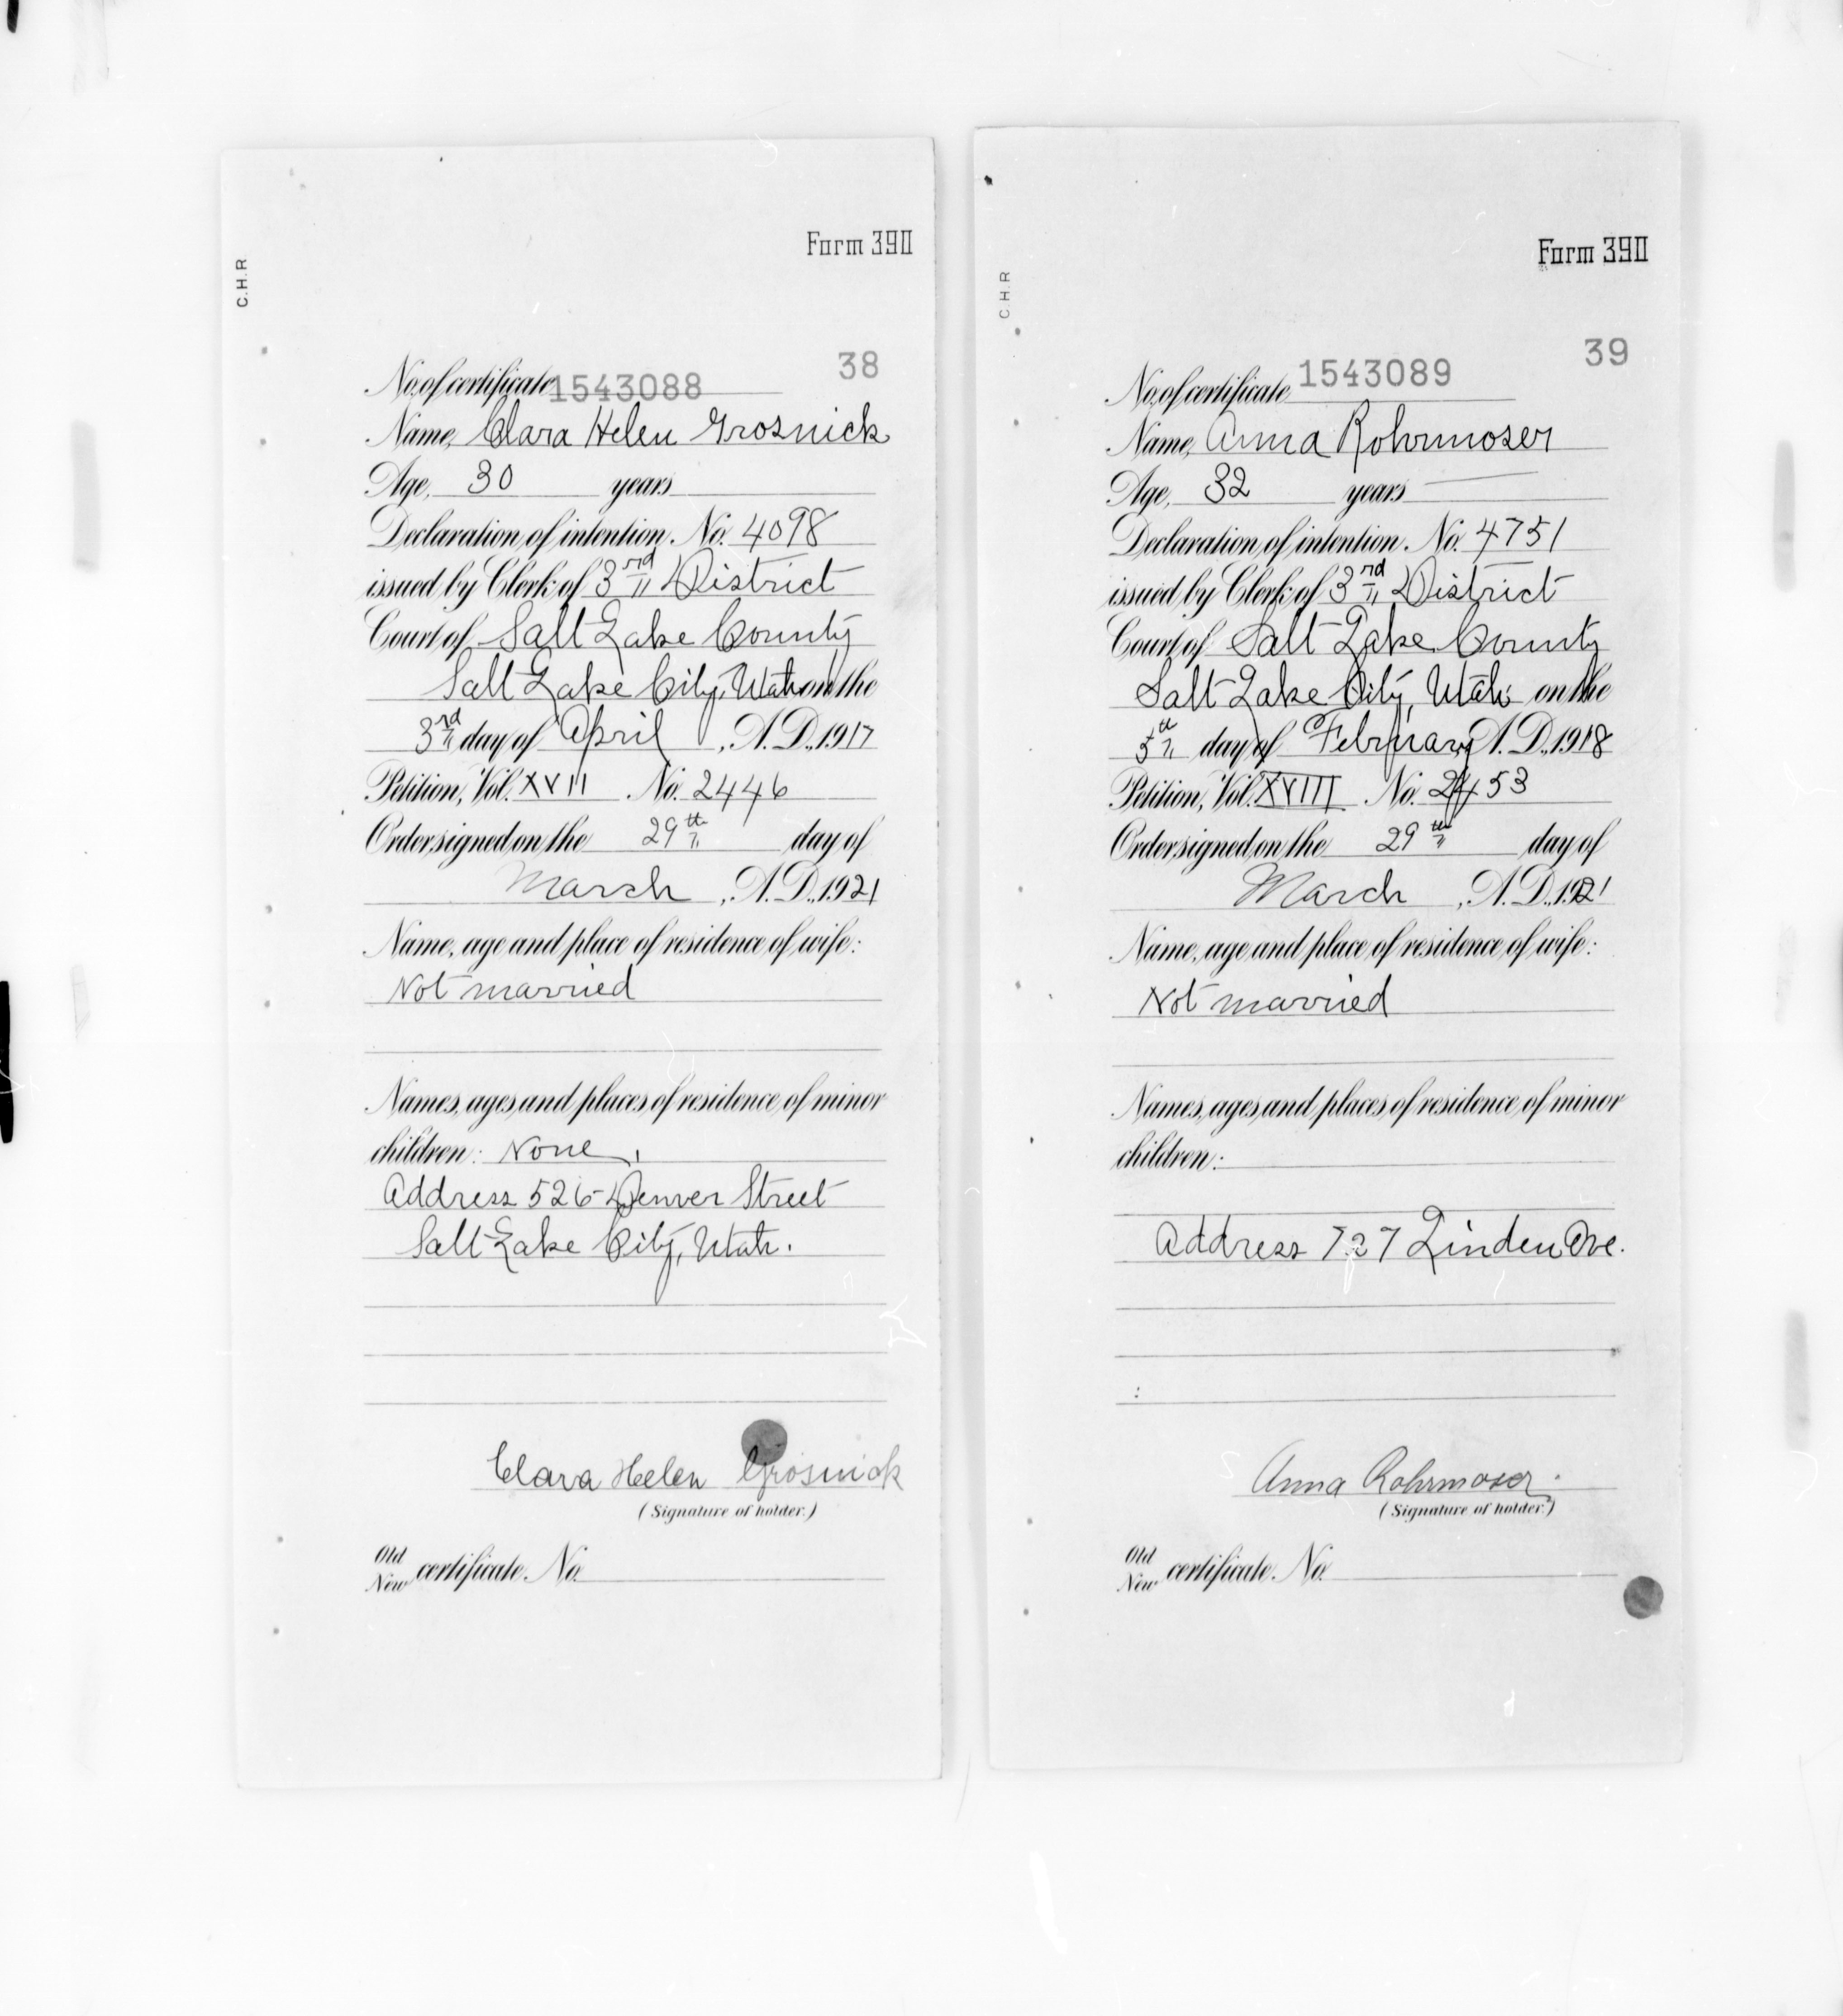 Form 390
C.H.R
38
No. of certificate 1543088
Name, Clara Helen Grosnick
Age, 30 years
Declaration of intention, No. 4098
issued by Clerk of 3rd District
Court of Salt Lake County
Salt Lake City, Utah on the
3rd day of April, A.D., 1917
Petition, Vol. XVII No. 2446
Order signed on the 29th day of
March, A.D., 1921
Name, age and place of residence of wife:
Not married
Names, ages and places of residence of minor
children: None.
Address 526 Denver Street
Salt Lake City, Utah.
Clara Helen Grosnick
(Signature of holder.)
Old
New certificate No.
Form 390
C.H.R
39
No. of certificate 1543089
Name, Anna Rohrmoser
Age, 32 years
Declaration of intention, No. 4751
issued by Clerk of 3rd District
Court of Salt Lake County
Salt Lake City, Utah on the
5th day of February A.D., 1918
Petition, Vol. XVIII No. 2453
Order signed on the 29th day of
March, A.D., 1921
Name, age and place of residence of wife:
Not married
Names, ages and places of residence of minor
children:
Address 727 Linden Ave.
Anna Rohrmoser.
(Signature of holder.)
Old
New certificate No.